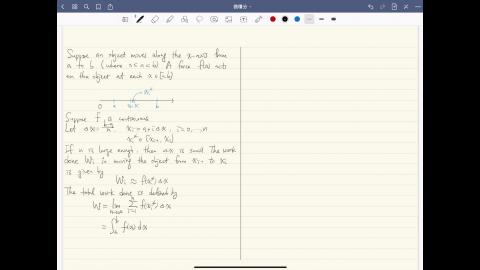 Suppose an object moves along the x-axis from
a to b (where 0 ≤ a < b). A force f(x) acts
on the object at each x ∈ [a,b]
xᵢ*
0 a b
Suppose f is continuous
Let Δx = (b-a)/n, xᵢ = a + iΔx, i = 0, ..., n
xᵢ* ∈ [xᵢ₋₁, xᵢ]
If n is large enough, then Δx is small. The work
done Wᵢ in moving the object from xᵢ₋₁ to xᵢ
is given by
Wᵢ ≈ f(xᵢ*) Δx
The total work done is defined by
W = lim n→∞ Σ i=1 n f(xᵢ*) Δx
= ∫ₐᵇ f(x) dx